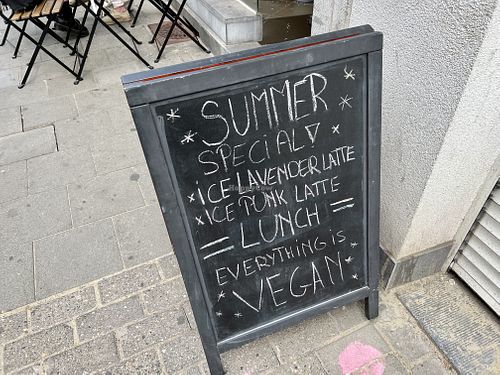 SUMMER
SPECIAL!
* ICE LAVENDER LATTE
* ICE PUNK LATTE
= LUNCH =
EVERYTHING IS
* VEGAN *